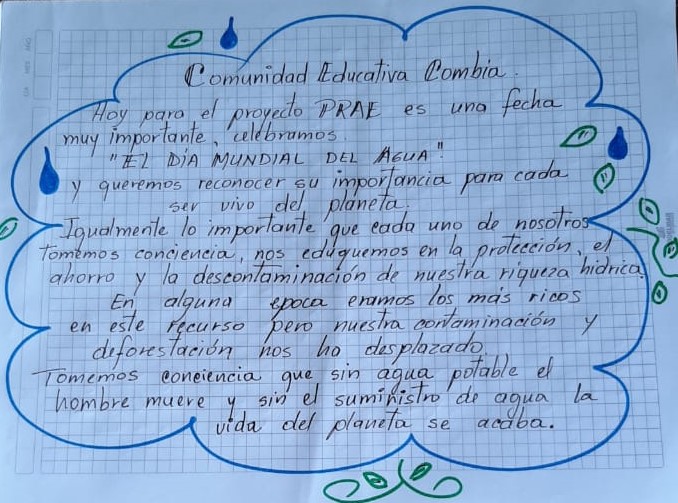 Comunidad Educativa Combia.
Hoy para el proyecto PRAE es una fecha
muy importante, celebramos.
"El DíA MUNDIAL DEL AGUA".
y queremos reconocer su importancia para cada
ser vivo del planeta.
Igualmente lo importante que cada uno de nosotros
tomemos conciencia, nos eduquemos en la protección, el
ahorro y la descontaminación de nuestra riqueza hídrica.
En alguna epoca eramos los más ricos
en este recurso pero nuestra contaminación y
deforestación nos ha desplazado
Tomemos conciencia que sin agua potable el
hombre muere y sin el suministro de agua la
vida del planeta se acaba.